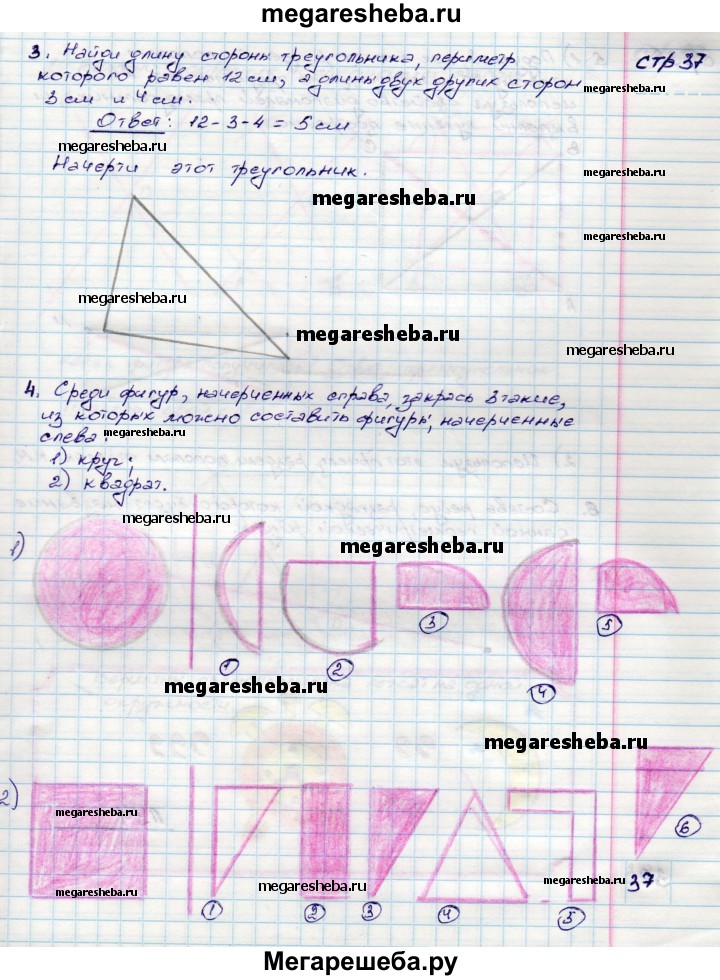 megaresheba.ru
стр 37
3. Найди длину стороны треугольника, периметр
которого равен 12 см, а длины двух других сторон
3 см и 4 см.
megaresheba.ru
Ответ: 12-3-4 = 5 см
megaresheba.ru
Начерти этот треугольник.
megaresheba.ru
megaresheba.ru
megaresheba.ru
megaresheba.ru
megaresheba.ru
megaresheba.ru
4. Среди фигур, начерченных справа, закрась 3 такие,
из которых можно составить фигуры, начерченные
слева:
megaresheba.ru
1) круг;
2) квадрат.
megaresheba.ru
megaresheba.ru
1)
1 2 3 4 5
megaresheba.ru
megaresheba.ru
2)
megaresheba.ru
megaresheba.ru
megaresheba.ru
megaresheba.ru
37
1 2 3 4 5 6
Мегарешеба.ру